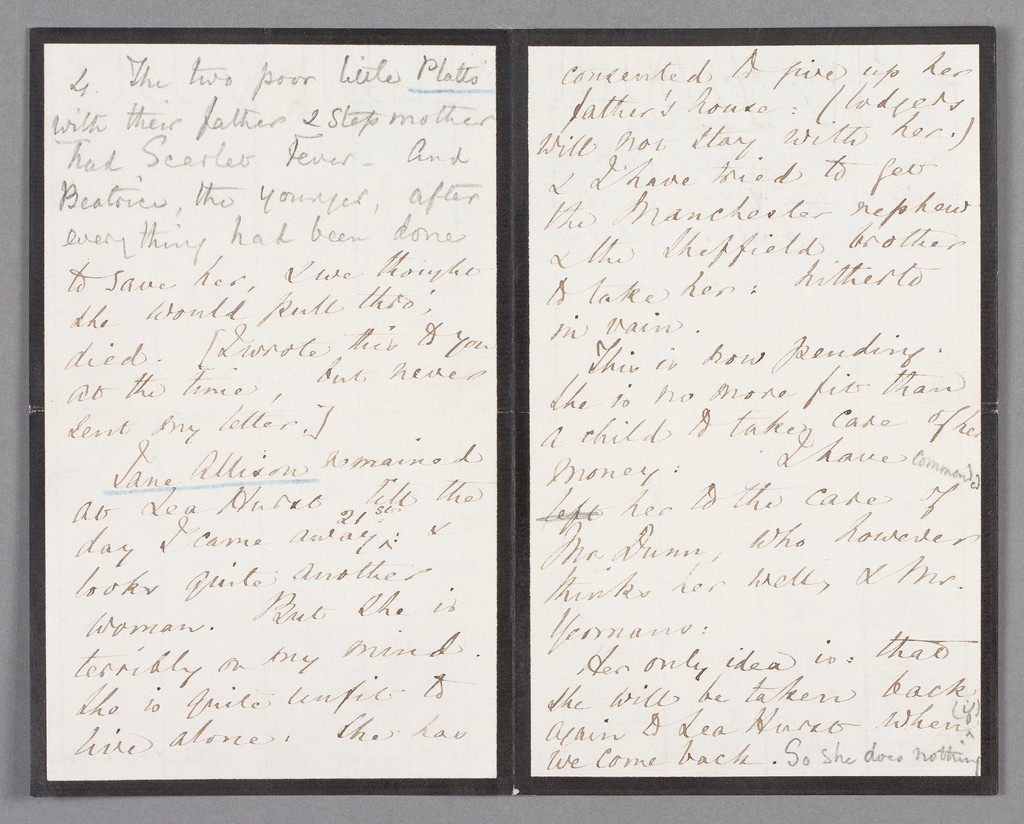 4. The two poor little Platts
with their father & Step mother
had Scarlet Fever - And
Beatrice, the younger, after
everything had been done
to save her, & we thought
she would pull thro',
died. [I wrote this to you
at the time, but never
sent my letter.]
Jane Allison remained
at Lea Hurst till the
day I came away 21st: &
looks quite another
woman. But she is
terribly on my mind.
She is quite unfit to
live alone: She has
consented to give up her
father's house: (lodgers
will not stay with her.)
& I have tried to get
the Manchester nephew
& the Sheffield brother
to take her: hitherto
in vain.
This is now pending.
She is no more fit than
a child to take care of her
money: I have commended
left her to the care of
Mr Dunn, who however
thinks her well, & Mr.
Yeomans:
Her only idea is: that
she will be taken back
again to Lea Hurst when (if)
we come back. So she does nothing